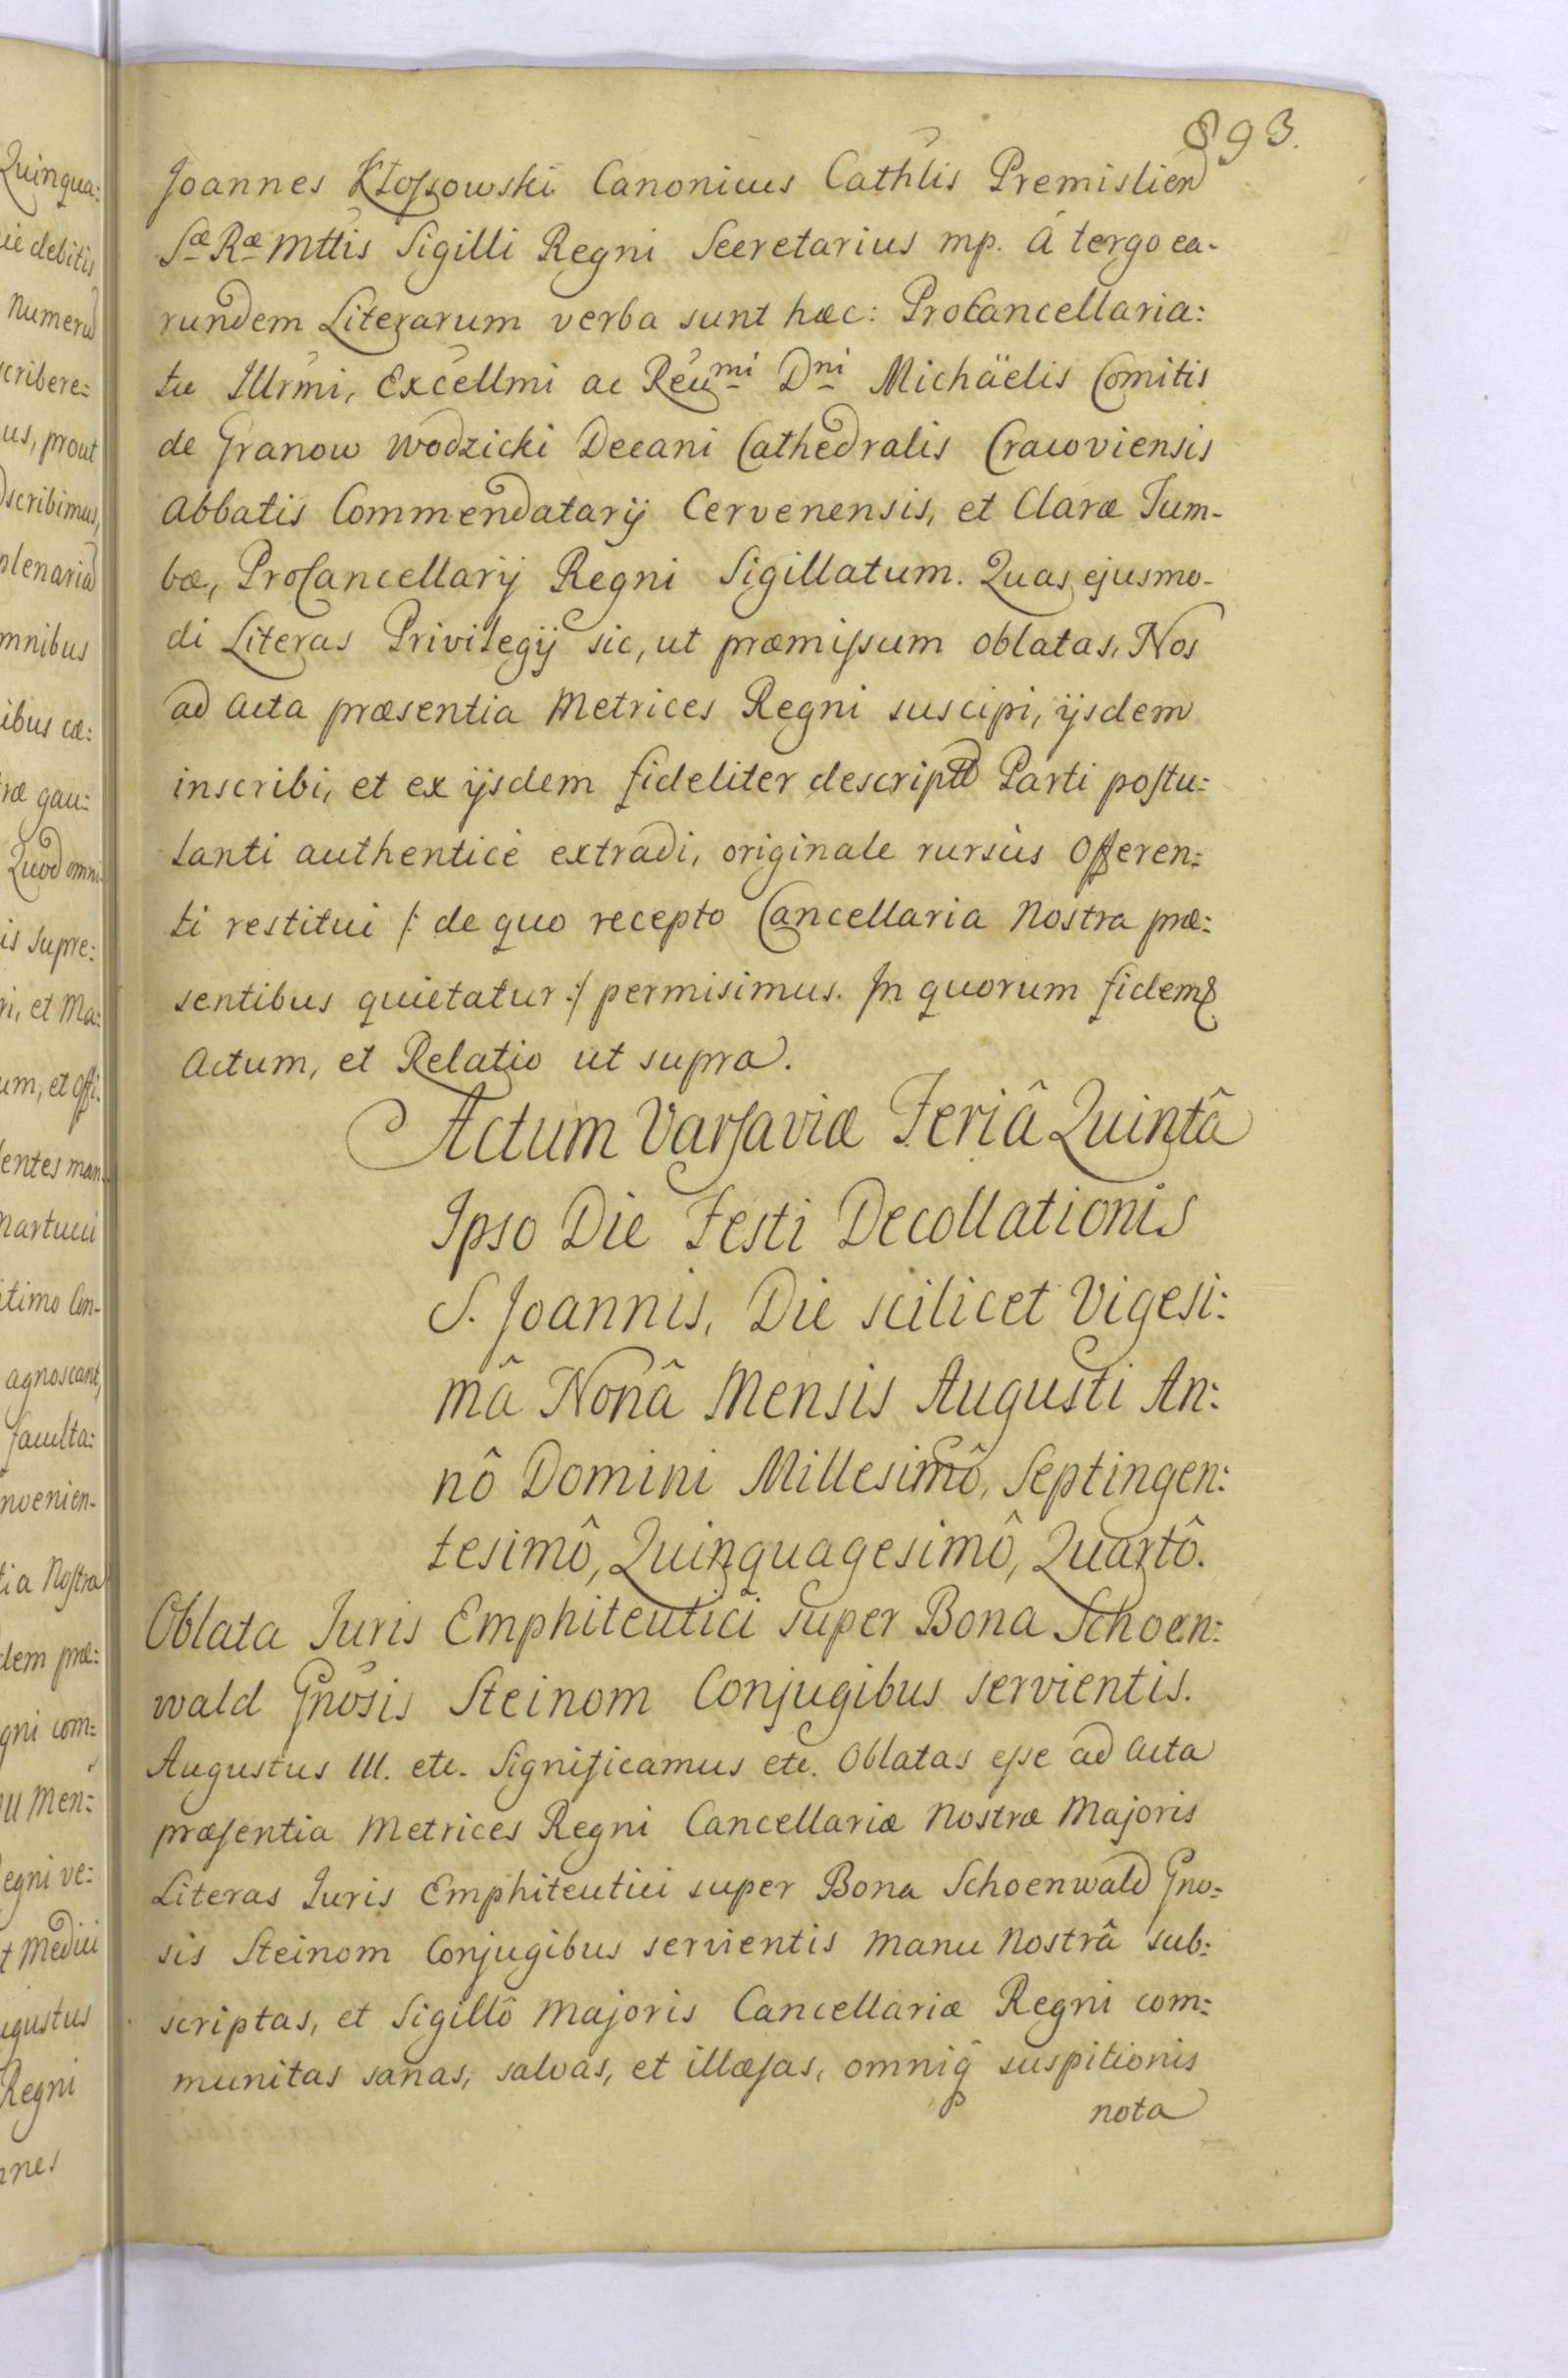 893.
Joannes Kłoſzowski Canonicus Cathlis Premislien
Sæ Ræ Mttis Sigilli Regni Secretarius mp. â tergo ea-
rundem Literarum verba sunt hæc: ProCancellaria:
tu Illrmi, Excellmi ac Reumi Dni Michäelis Comitis
de Granow Wodzicki Decani Cathedralis Cracoviensis
Abbatis Commendatarij Cervenensis, et Claræ Tum-
bæ, ProCancellarij Regni Sigillatum. Quas ejusmo-
di Literas Privilegij sic, ut præmiſsum oblatas, Nos
ad Acta præsentia Metrices Regni suscipi, ijsdem
inscribi, et ex ijsdem fideliter descriptū Parti poſtu:
lanti authenticè extradi, originale rursùs Offeren:
ti restitui /: de quo recepto Cancellaria Nostra præ:
sentibus quietatur :/ permisimus. In quorum fidem &
Actum, et Relatio ut supra.
Actum Varſaviæ Feriâ Quintâ
Ipso Die Festi Decollationis
S. Joannis, Die scilicet Vigesi:
mâ Nonâ Mensis Augusti An:
nô Domini Millesimô, Septingen:
tesimô, Quinquagesimô, Quartô.
Oblata Juris Emphiteutici super Bona Schoen:
wald Gnosis Steinom Conjugibus servientis.
Augustus III. etc. Significamus etc. Oblatas eſse ad Acta
præſentia Metrices Regni Cancellariæ Nostræ Majoris
Literas Juris Emphiteutici super Bona Schoenwald Gno:
sis Steinom Conjugibus servientis Manu Nostrâ sub:
scriptas, et Sigillô Majoris Cancellariæ Regni com:
munitas sanas, salvas, et illæſas, omniq̃ suspitionis
nota